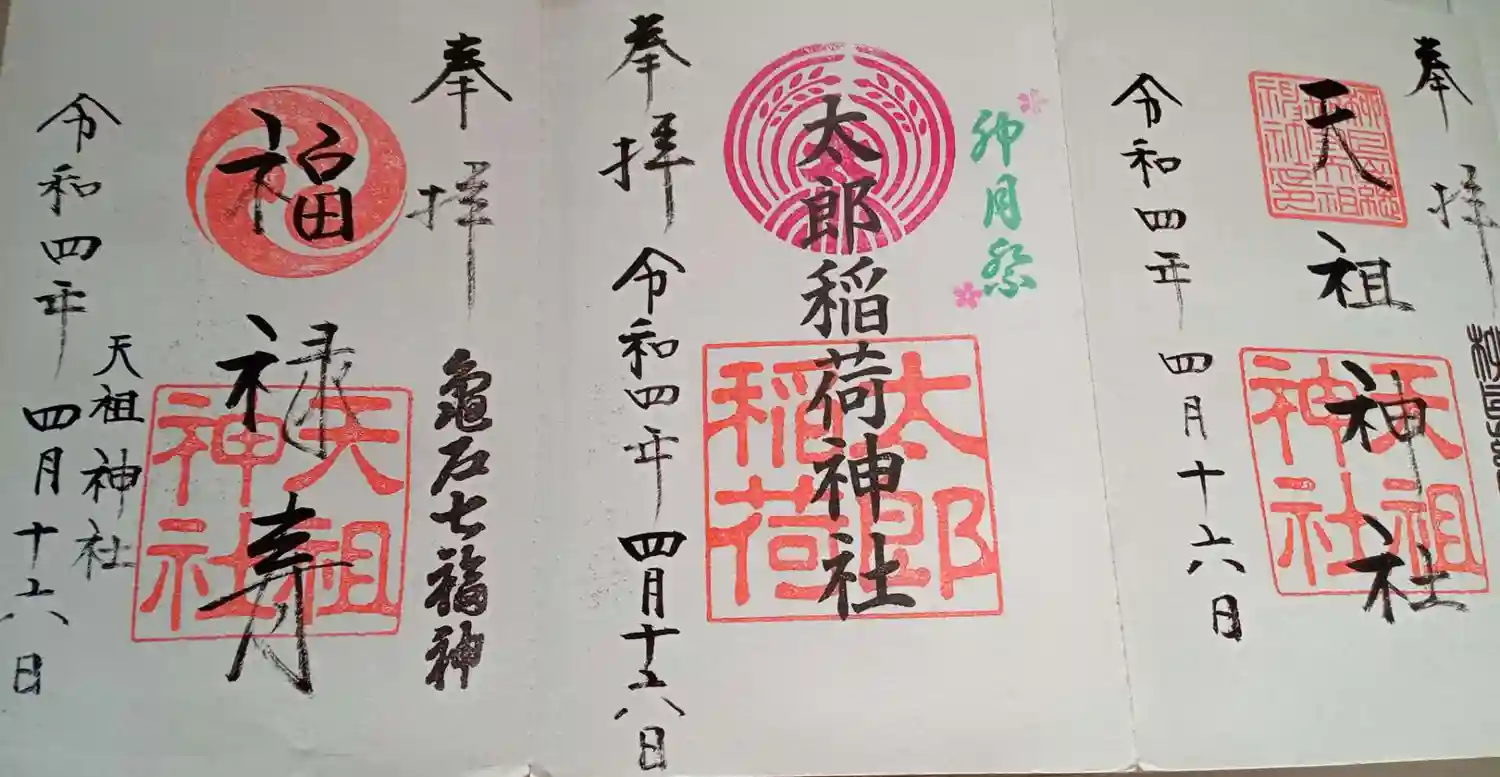 奉拝
天祖神社
天祖神社
令和四年四月十六日
卯月祭
太郎稲荷神社
太郎稲荷
奉拝
令和四年四月十六日
奉拝
亀石七福神
福禄寿
天祖神社
天祖神社
令和四年四月十六日